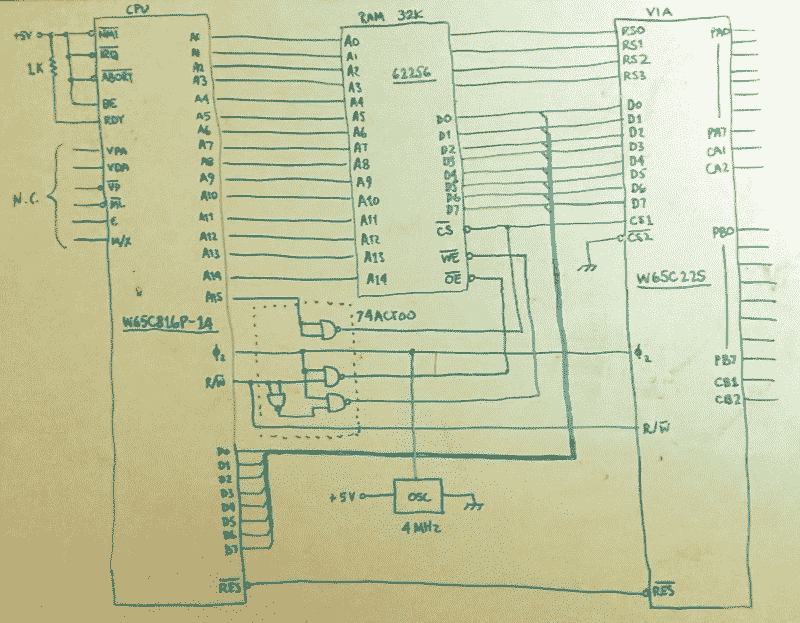 CPU
+5V
NMI
IRQ
1K
ABORT
BE
RDY
VPA
VDA
VP
ML
E
M/X
N.C.
A1
A2
A3
A4
A5
A6
A7
A8
A9
A10
A11
A12
A13
A14
A15
W65C816P-14
Φ2
R/W
D0
D1
D2
D3
D4
D5
D6
D7
RES
RAM 32K
62256
A0
A1
A2
A3
A4
A5
A6
A7
A8
A9
A10
A11
A12
A13
A14
D0
D1
D2
D3
D4
D5
D6
D7
CS
WE
OE
74ACT00
+5V
OSC
4MHz
VIA
RS0
RS1
RS2
RS3
D0
D1
D2
D3
D4
D5
D6
D7
CS1
CS2
W65C22S
Φ2
R/W
RES
PA0
PA7
CA1
CA2
PB0
PB7
CB1
CB2